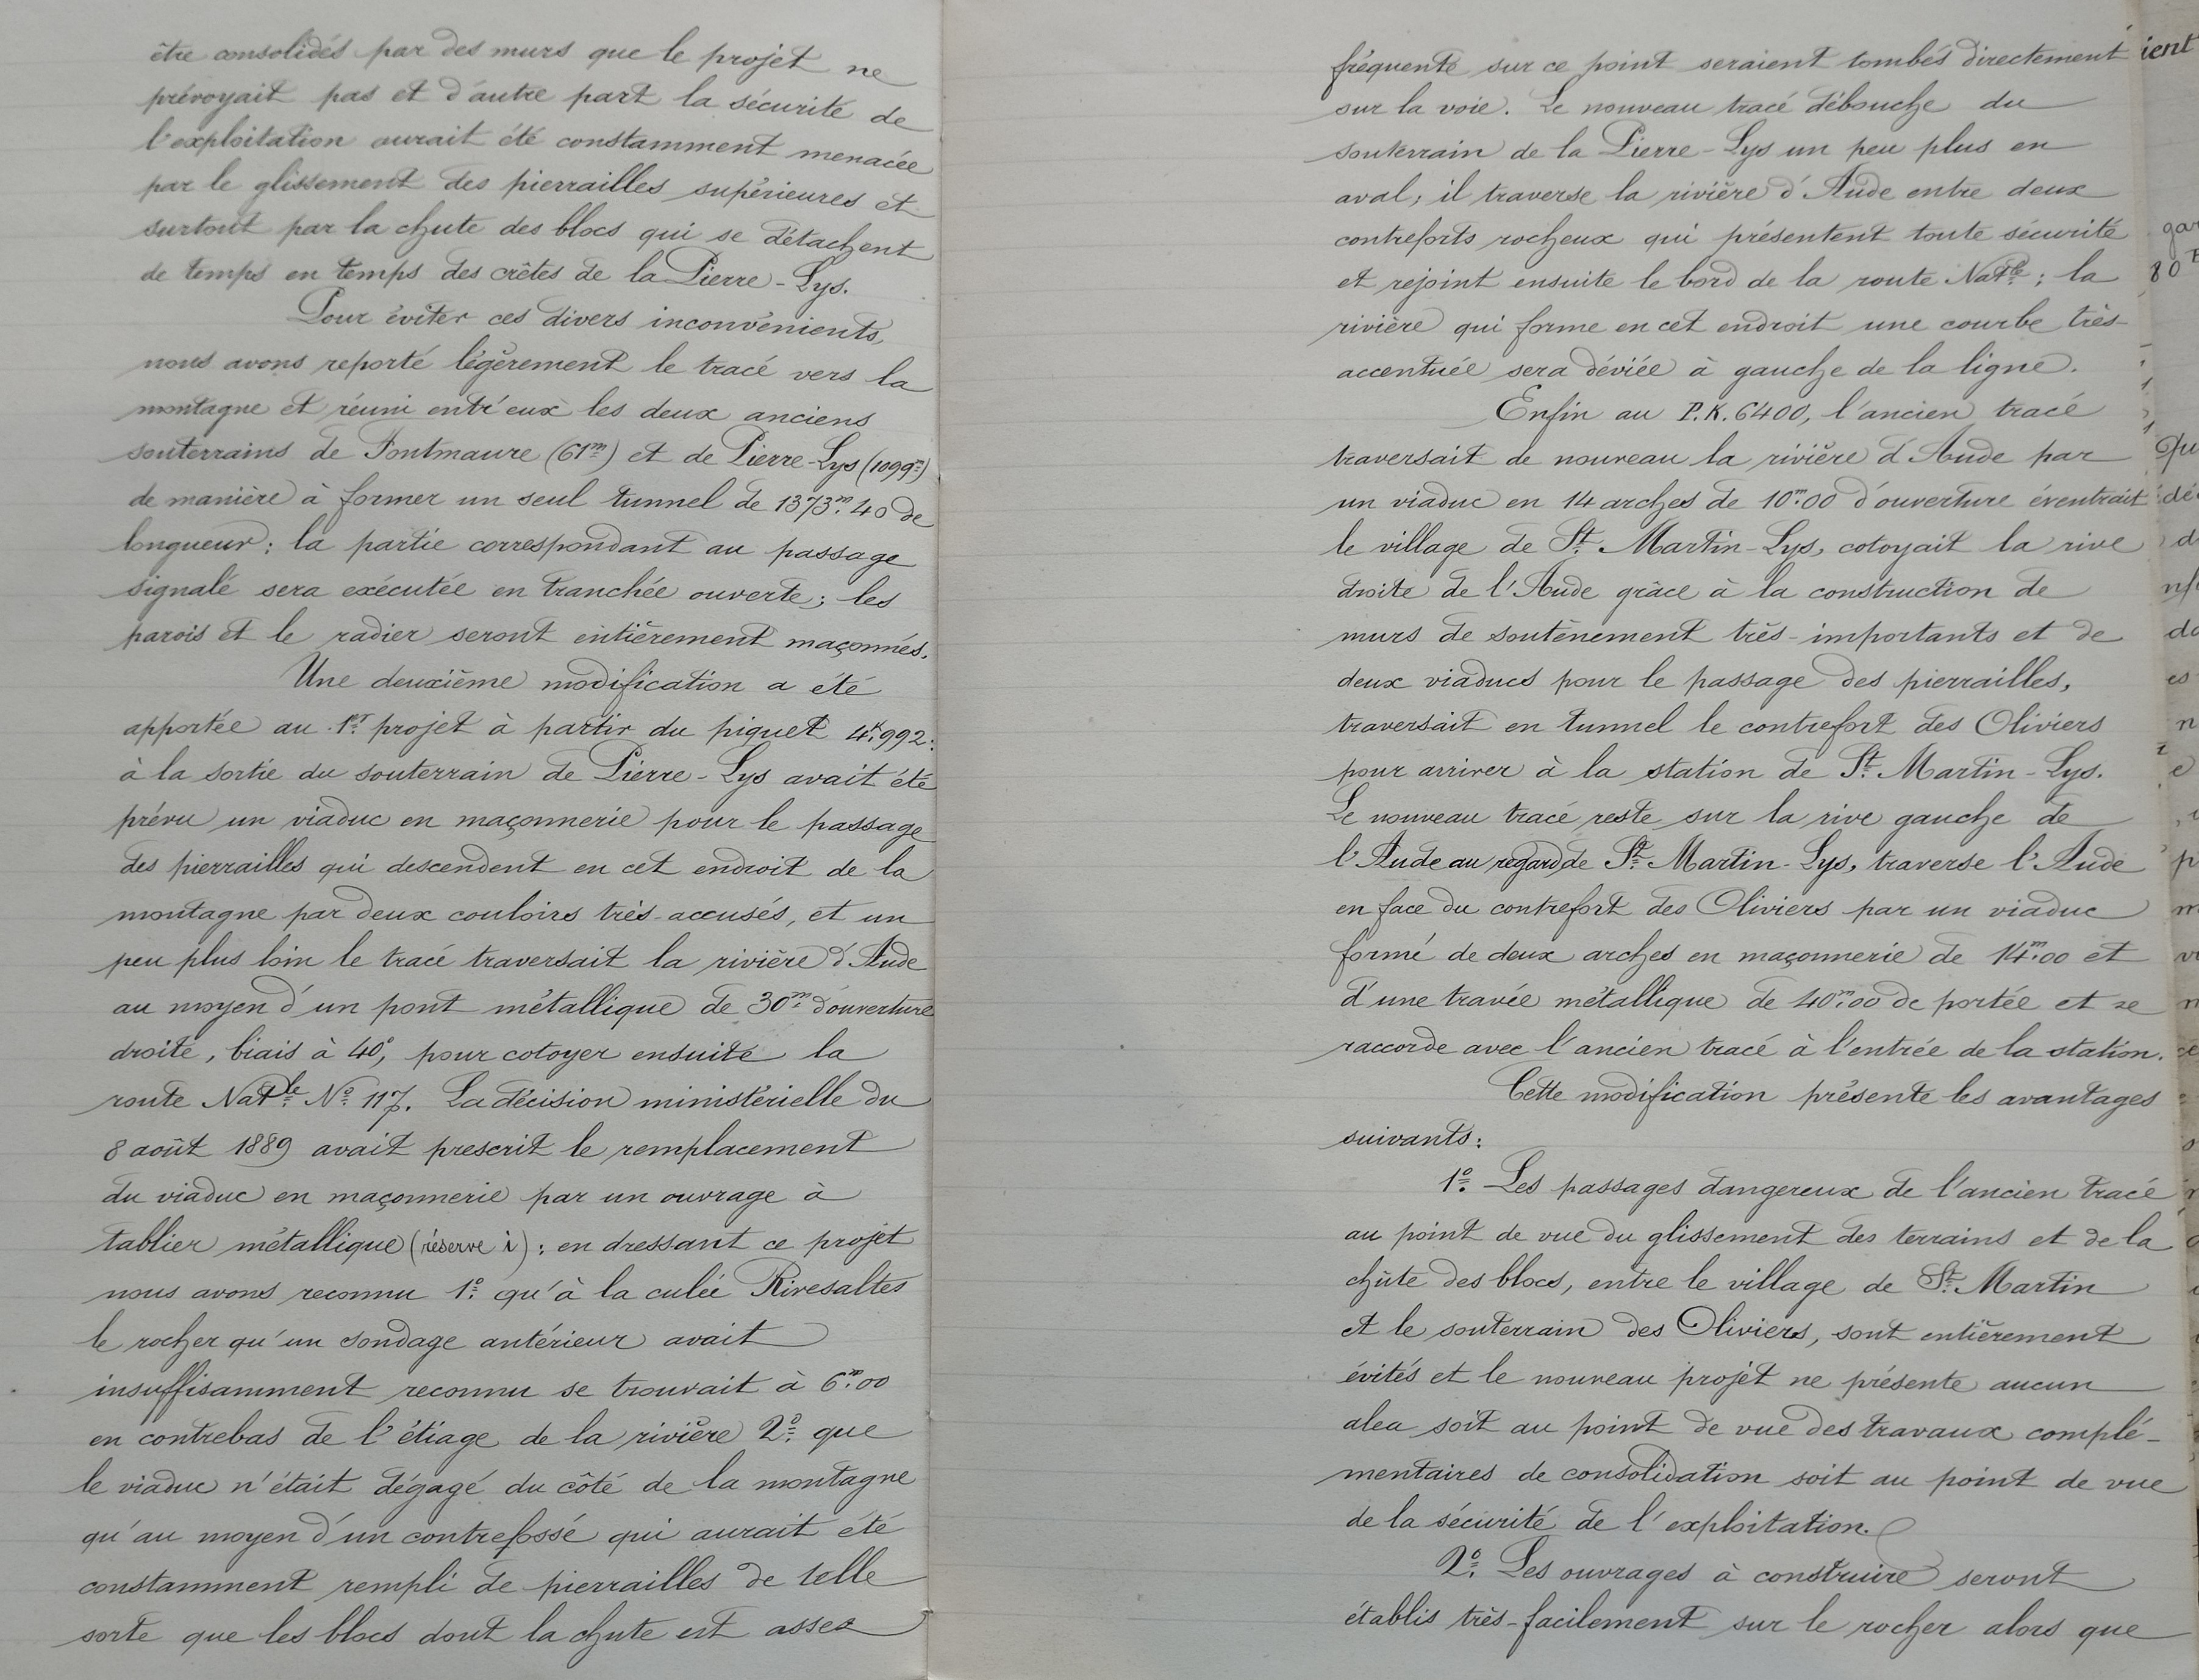 être consolidés par des murs que le projet ne
prévoyait pas et d'autre part la sécurité de
l'exploitation aurait été constamment menacée
par le glissement des pierrailles supérieures et
surtout par la chute des blocs qui se détachent
de temps en temps des crêtes de la Pierre-Lys.
Pour éviter ces divers inconvénients,
nous avons reporté légèrement le tracé vers la
montagne et réuni entr'eux les deux anciens
souterrains de Fontmaure (61m) et de Pierre-Lys (1099m)
de manière à former un seul tunnel de 1373m.40 de
longueur; la partie correspondant au passage
signalé sera exécutée en tranchée ouverte; les
parois et le radier seront entièrement maçonnés.
Une deuxième modification a été
apportée au 1er projet à partir du piquet 4k.992:
à la sortie du souterrain de Pierre-Lys avait été
prévu un viaduc en maçonnerie pour le passage
des pierrailles qui descendent en cet endroit de la
montagne par deux couloirs très-accusés, et un
peu plus loin le tracé traversait la rivière d'Aude
au moyen d'un pont métallique de 30m d'ouverture
droite, biais à 40°, pour cotoyer ensuite la
route Natle No 117. La décision ministérielle du
8 août 1889 avait prescrit le remplacement
du viaduc en maçonnerie par un ouvrage à
tablier métallique (réserve i): en dressant ce projet
nous avons reconnu 1o. qu'à la culée Rivesaltes
le rocher qu'un sondage antérieur avait
insuffisamment reconnu se trouvait à 6m.00
en contrebas de l'étiage de la rivière 2o. que
le viaduc n'était dégagé du côté de la montagne
qu'au moyen d'un contrefossé qui aurait été
constamment rempli de pierrailles de telle
sorte que les blocs dont la chute est assez
fréquente sur ce point seraient tombés directement
sur la voie. Le nouveau tracé débouche du
souterrain de la Pierre-Lys un peu plus en
aval; il traverse la rivière d'Aude entre deux
contreforts rocheux qui présentent toute sécurité
et rejoint ensuite le bord de la route Natle; la
rivière qui forme en cet endroit une courbe très-
accentuée sera déviée à gauche de la ligne.
Enfin au P.K. 6400, l'ancien tracé
traversait de nouveau la rivière d'Aude par
un viaduc en 14 arches de 10m.00 d'ouverture éventrait
le village de St. Martin-Lys, cotoyait la rive
droite de l'Aude grâce à la construction de
murs de soutènement très-importants et de
deux viaducs pour le passage des pierrailles,
traversait en tunnel le contrefort des Oliviers
pour arriver à la station de St. Martin-Lys.
Le nouveau tracé reste sur la rive gauche de
l'Aude au regard de St. Martin-Lys, traverse l'Aude
en face du contrefort des Oliviers par un viaduc
formé de deux arches en maçonnerie de 14m.00 et
d'une travée métallique de 40m.00 de portée et se
raccorde avec l'ancien tracé à l'entrée de la station.
Cette modification présente les avantages
suivants:
1o. Les passages dangereux de l'ancien tracé
au point de vue du glissement des terrains et de la
chûte des blocs, entre le village de St. Martin
et le souterrain des Oliviers, sont entièrement
évités et le nouveau projet ne présente aucun
alea soit au point de vue des travaux complé-
mentaires de consolidation soit au point de vue
de la sécurité de l'exploitation.
2o. Les ouvrages à construire seront
établis très-facilement sur le rocher alors que